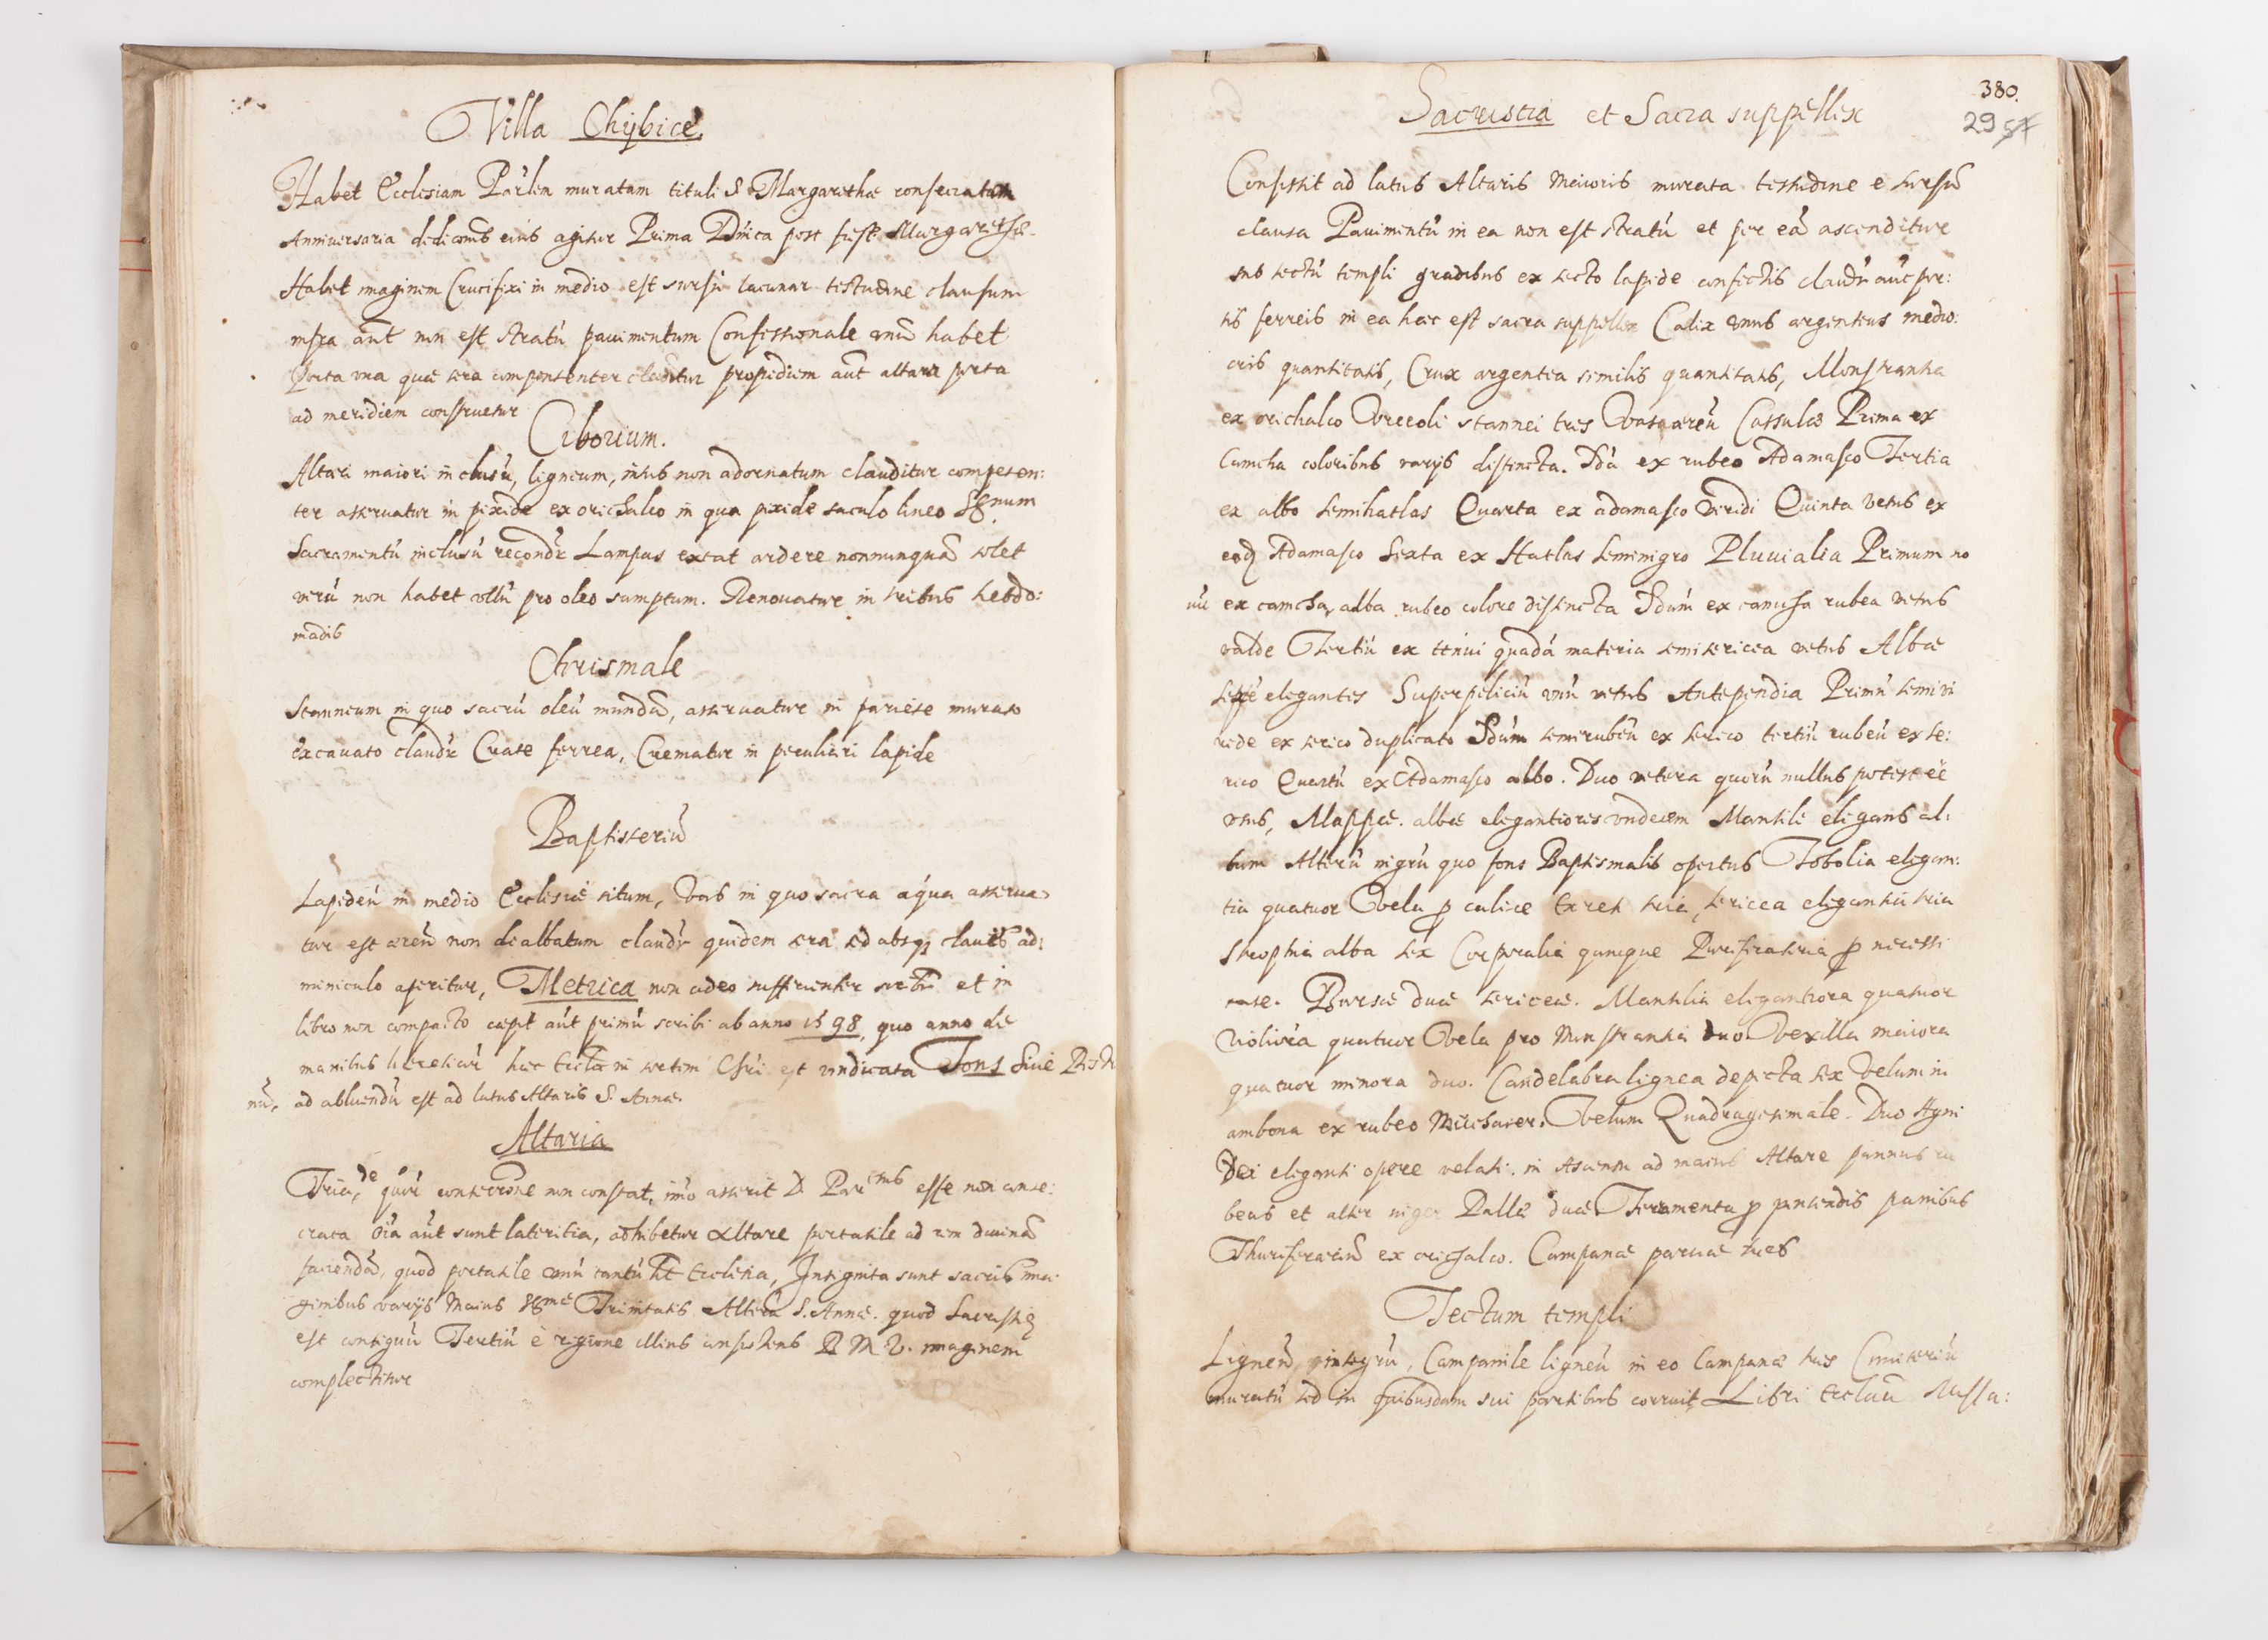 Villa Chÿbice.
Habet Ecclesiam Parlem muratam tituli S. Margarethæ consecratam
Anniuersaria dedicaonis eius agitur Prima Dnica post fest. Margarethæ.
Habet imaginem Crucifixi in medio est sursū lacunar testudine clausum
infra aūt non est stratū pauimentum Confessionale vnū habet
Porta vna quæ sera competenter clauditur propediem aūt altera porta
ad meridiem construetur
Ciborium.
Altari maiori inclusū, ligneum, intus non adornatum clauditur competen:
ter asseruatur in pixide ex orichalco in qua pixide sacculo lineo
Sacramentū inclusū recondr̄ Lampas extat ardere nonnunquā solet
verū non habet vllū pro oleo sumptum. Renouatur in tribus hebdo:
madis
Chrismale
Stanneum in quo sacrū oleū mundū, asseruatur in pariete murato
excauato claudr̄ Crate ferrea, Crematur in peculiari lapide
Baptisteriū
Lapideū in medio Ecclesiæ situm, Vas in quo sacra aqua asserua-
tur est æreū non dealbatum claudr̄ quidem sera sed absq3 clauis ad:
miniculo aperitur, Metrica non adeo sufficienter et in
libro non compacto cæpit aūt primū scribi ab anno 1598, quo anno de
manibus hereticor̄ hæc Eccla est vindicata Fons siue
nū. ad abluendū est ad latus Altaris S. Annæ.
Altaria
Tria, de quor̄ consecraone non constat, imo asserit D. esse non conse:
crata oīa aūt sunt lateritia, adhibetur Altare portatile ad rem diuinā
faciendā, quod portatile vnū tantū ht̄ Ecclesia, Insignita sunt sacris ima
ginibus varijs Maius SSmæ Trinitatis Alterū S. Annæ. quod Sacristiæ
est contiguū Tertiū è regione illius consistens B M V. imaginem
complectitur
380.
29 57
Sacristia et Sacra suppellex
Consistit ad latus Altaris Maioris murata testudine e sursū
clausa Pauimentū in ea non est stratū et per eā ascenditur
sub tectū templi gradibus ex secto lapide confectis claudr̄ aūt por:
tis ferreis in ea hæc est sacra suppellex Calix vnus argenteus medio:
cris quantitatis, Crux argentea similis quantitatis, Monstrantia
ex orichalco Vrceoli stannei tres Vas æreū Casulæ Prima ex
Camcha coloribus varijs distincta. Sda ex rubeo Adamasco Tertia
ex albo semihatlas Quarta ex adamasco viridi Quinta vetus ex
eod Adamasco Sexta ex Hatlas seminigro Pluuialia Primum no
uū ex camcha alba rubeo colore distincta Sdum ex camcha rubea vetus
valde Tertiū ex tenui quadā materia semisericea vetus Albæ
elegantes Superpeliciū vnū vetus Antependia Primū semiui
ride ex serico duplicato Sdum semirubeū ex serico tertiū rubeū ex se:
rico Quartū ex Adamasco albo. Duo vetera quorū nullus potest eē
vsus, Mappæ albæ elegantiores vndecim Mantile elegans al:
bum Alterū nigrū quo fons Baptismalis opertus Tobolia elegan:
tia quatuor Vela p calice tria, sericea elegantia tria
Strophia alba sex Corporalia quinque Purificatoria p necessi
tate. Bursæ duæ sericeæ. Mantilia elegantiora quatuor
quatuor Vela pro Monstrantia duo Vexilla maiora
quatuor minora duo. Candelabra lignea depicta sex Velum in
ambona ex rubeo Velum Quadragesimale. Duo Agni
Dei eleganti opere velati. in Ascensu ad maius Altare pannus ru
beus et alter niger Pallæ duæ Feramenta p panibus
Thuriferariū ex orichalco. Campanæ paruæ tres
Tectum templi
Ligneū, integrū, Campanile ligneū in eo Campanæ tres Cimiteriū
muratū sed in quibusdam sui partibus corruit Libri Missa: